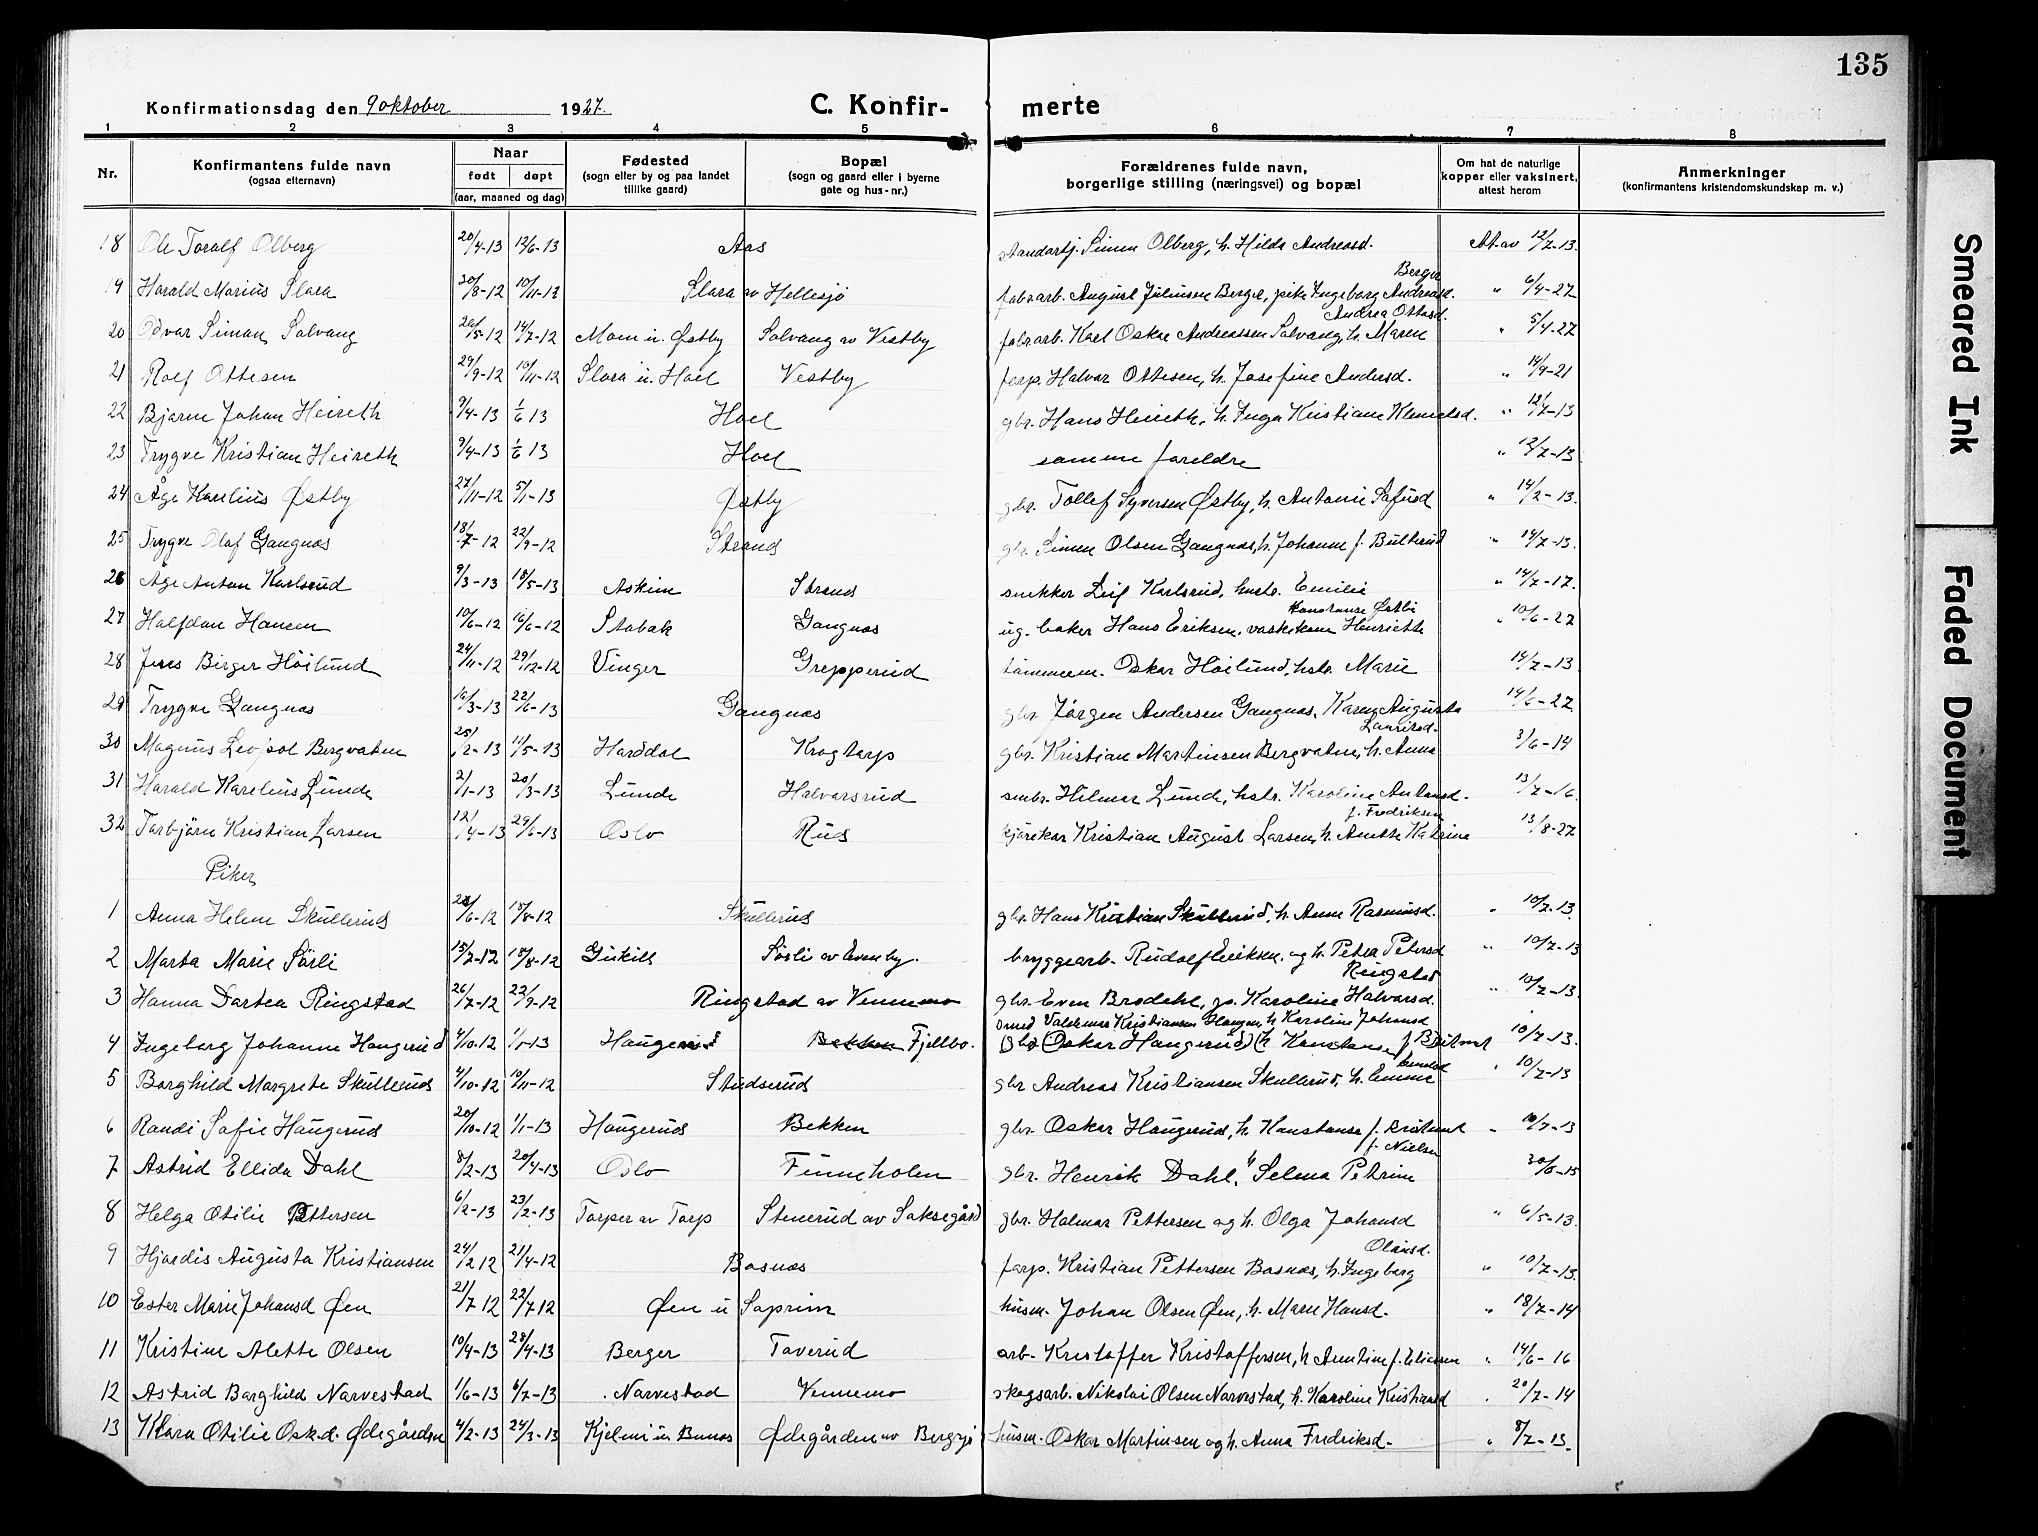 135
Konfirmationsdag den 9 oktober 1927. C. Konfir- merte
1 2 3 4 5 6 7 8
Nr. Konfirmantens fulde navn (ogsaa efternavn) Naar født døpt (aar, maaned og dag) Fødested (sogn eller by og paa landet tillike gaard) Bopæl (sogn og gaard eller i byerne gate og hus-nr.) Forældrenes fulde navn, borgerlige stilling (næringsvei) og bopæl Om hat de naturlige kopper eller vaksinert, attest herom Anmerkninger (konfirmantens kristendomskundskap m. v.)
18 Ole Toralf Olberg 20/4-13 12/6-13 Aas Simen Olberg, h. Hilda Andreasd. At. av 12/7-13.
19 Harald Marius Slara 30/8-12 10/11-12 Slara av Hellesjø fabr.arb. August Juliussen Berger, pike Ingeborg Andreasd. Berger " 6/4-27
20 Odvar Simon Solvang 26/5-12 14/7-12 Moen u. Østby Solvang av Vestby fabr.arb. Karl Oskar Andreassen Solvang, h. Maren Andrea Ottosd. " 5/4-27
21 Rolf Ottesen 29/9-12 10/11-12 Slara u. Hoel Vestby forp. Halvor Ottesen, h. Josefine Andersd. " 14/9-21
22 Bjarne Johan Heireth 9/4-13 1/6 13 Hoel gbr. Hans Heireth, h. Inga Kristiane Klemetsd. " 12/7-13
23 Trygve Kristian Heireth 9/4-13 1/6 13 Hoel samme foreldre " 12/7-13
24 Åge Karelius Østby 27/11-12 5/1-13 Østby gbr. Tollef Syversen Østby, h. Antonie " 14/2-13.
25 Trygve Olaf Gangnæs 18/7-12 22/9-12 Strand gbr. Simen Olsen Gangnæs, h. Johanne f. Bulterud " 14/7-13.
26 Åge Anton Karlsrud 9/3-13 18/5-13 Askim Strand snekker Leif Karlsrud, hustr. Emilie " 14/7-17.
27 Halfdan Hansen 10/6-12 16/6-12 Stabæk Gangnæs ug. baker Hans Eriksen, vaskekone Henriette Konstanse Østbi " 10/6-27
28 Jens Birger Höilund 24/11-12 29/12-12 Vinger Grepperud tömmerm. Oskar Höilund, hstr. Marie 14/7-13
29 Trygve Gangnæs 16/3-13 22/6-13 Gangnæs gbr. Jørgen Andersen Gangnæs, Karen Augusta 14/6-27
30 Magnus Leopol Bergvaten 25/2-13 11/5-13 Harddal Krogtorp gbr. Kristian Martinsen Bergvaten, h. Anna Lauritsd. 3/6-14
31 Harald Karelius Lunde 2/1-13 20/3-13 Lunde Halvorsrud smbr. Hilmar Lund, hstr. Karoline Antonsd. 13/7-16.
32 Torbjörn Kristian Larsen 12/4-13 29/6-13 Oslo Rud kjörekar Kristian August Larsen, h. Anette Katrine f. Fredriksen 13/8-27
Piker
1 Anna Helene Skullerud 28/6-12 18/8-12 Skullerud gbr. Hans Kristian Skullerud, h. Anne Rasmusd. " 10/7-13.
2 Marta Marie Sörli 15/7-12 18/8-12 Sörli av Evenby. bryggearb. Rudolf Eriksen, og h. Petra Petersd " 10/7-13
3 Hanna Dortea Ringstad 26/7-12 22/9-12 Ringstad av Vennemo gbr. Even Brodahl, Karoline Halvorsd. Ringstad " 10/7-13.
4 Ingeborg Johanne Haugerud 4/10-12 1/1-13 Haugerud Bekken Fjellbo. smed Valdemar Kristiansen Haugen, h Karoline Johansd Gbr (Oskar Haugerud) (h Konstanse f Britant 10/7-13.
5 Borghild Margrete Skullerud 4/10-12 10/11-12 Studserud gbr Andreas Kristiansen Skullerud, h. Emma " 10/7-13
6 Randi Sofie Haugerud 20/10-12 1/1-13 Haugerud Bekken gbr. Oskar Haugerud, h. Konstanse f. Britant " 10/7-13
7 Astrid Ellida Dahl 8/2-13 20/4-13 Oslo Finneholen gbr. Henrik Dahl, h Selma Petrine f. Nielsen 30/6-15
8 Helga Otilie Pettersen 6/2-13 23/2-13 Torper av Torp Stenerud av Saksegård gbr. Halmar Pettersen og h. Olga Johansd " 6/5-13.
9 Hjørdis Augusta Kristiansen 24/2 12 21/4-12 Bosnæs forp. Kristian Pettersen Bosnæs, h. Ingeborg Olausd. " 10/7-13.
10 Ester Marie Johansd Øen 21/7 12 22/7 12 Øen u Soprim husm. Johan Olsen Øen, h. Marie Hansd. " 18/7-14
11 Kristine Alette Olsen 10/4-13 28/4-13 Berger Toverud arb. Kristoffer Kristoffersen, h Arntine f. Eliassen " 14/6-16
12 Astrid Borghild Narvestad 1/6-13 6/7-13 Narvestad Vennemo skogsarb. Nikolai Olsen Narvestad, h. Karoline Kristiansd " 20/7-14
13 Klara Otilie Osk.d. Ødegården 4/2-13 24/3-13 Kjelmi u. Bunæs Ødegården av Bergsjø husm. Oskar Martinsen og h. Anna Fredriksd. " 8/7-13.
Smeared Ink
Faded Document